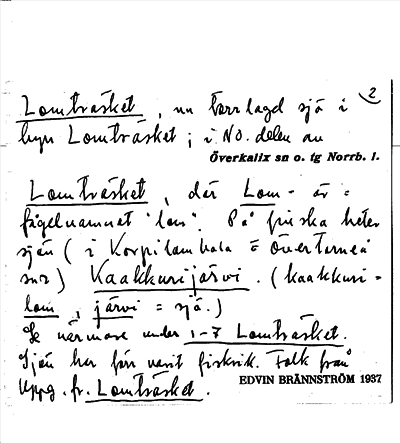 2
Lomträsket, nu torrlagd sjö i
byn Lomträsket; i NO. delen av
Överkalix sn o. tg Norrb. l.
Lomträsket, där Lom- är =
fågelnamnet "lom". På finska heter
sjön (i Korpilombolo o Övertorneå
snr) Kaakkurijärvi. (kaakkuri =
lom, järvi = sjö.)
Se närmare under 1-7 Lomträsket.
Sjön har förr varit fiskrik. Folk från
Uppg. fr. Lomträsket.
EDVIN BRÄNNSTRÖM 1937